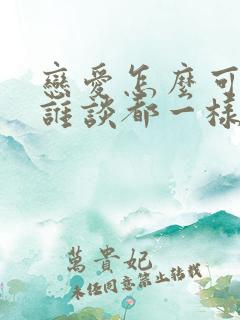 戀愛怎麼可
誰談都一樣
萬貴妃
未經同意禁止轉載